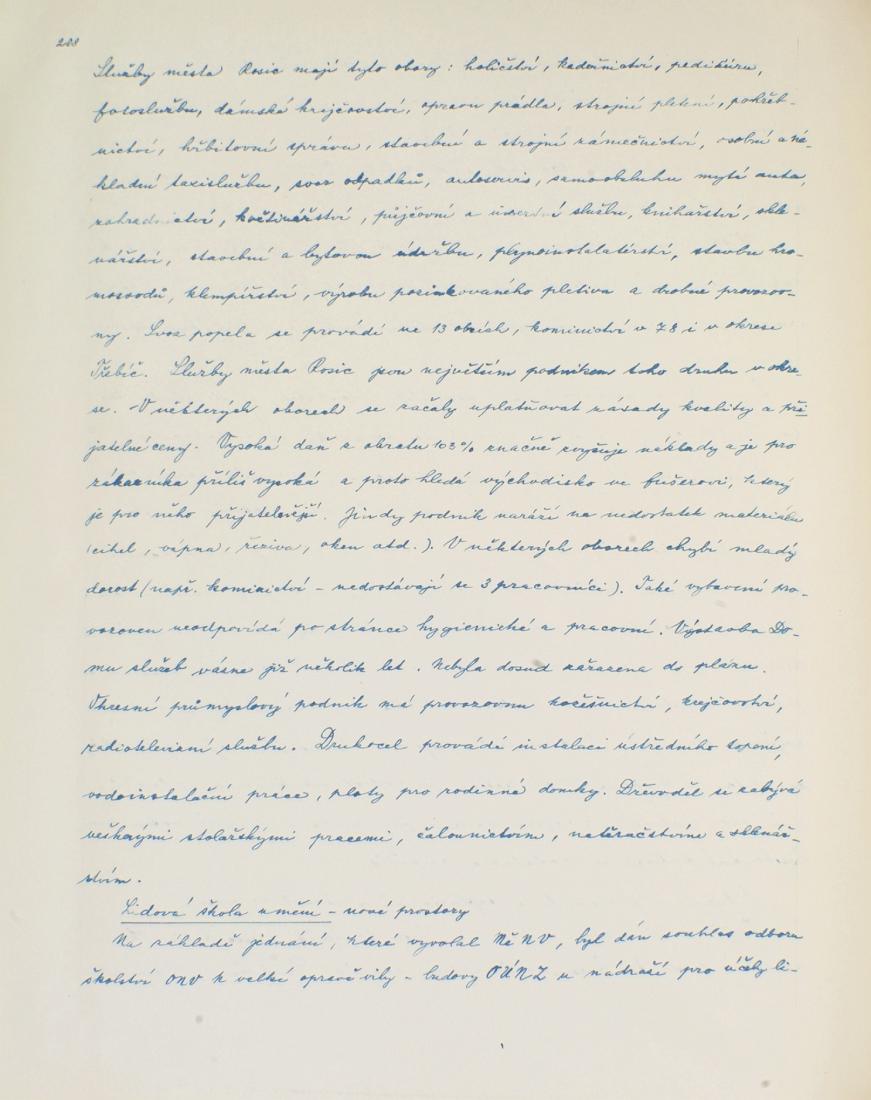 208
Služby města Rosic mají tyto obory: holičství, kadeřnictví, pedikúru,
fotoslužbu, dámské krejčovství, opravu prádla, strojní pletení, pohřeb-
nictví, hřbitovní správu, stavební a strojní zámečnictví, osobní a ná-
kladní taxislužbu, svoz odpadků, autoservis, samoobsluhu mytí auta,
zahradnictví, květinářství, půjčovní a úschovní službu, knihařství, skle-
nářství, stavební a bytovou údržbu, plynoinstalatérství, stavbu hro-
mosvodů, klempířství, výrobu pozinkovaného pletiva a drobné provozov-
ny. Svoz popela se provádí ve 13 obcích, kominictví v 78 i v okrese
Třebíč. Služby města Rosic jsou největším podnikem toho druhu v okre-
se. V některých oborech se začaly uplatňovat zásady kvality a při-
jatelné ceny. Vysoká daň z obratu 103% značně zvyšuje náklady a je pro
zákazníka příliš vysoká a proto hledá východisko ve fušerovi, který
je pro něho přijatelnější. Jindy podnik naráží na nedostatek materiálu
(cihel, vápna, řeziva, oken atd.). V některých oborech chybí mladý
dorost (např. kominictví - nedostávají se 3 pracovníci). Také vybavení pro-
vozoven neodpovídá po stránce hygienické a pracovní. Výstavba Do-
mu služeb vázne již několik let. Nebyla dosud zařazena do plánu.
Okresní průmyslový podnik má provozovnu kožešnictví, krejčovství,
radiotelevizní službu. Drukocel provádí instalaci ústředního topení,
vodoinstalační práce, ploty pro rodinné domky. Dřevoděl se zabývá
veškerými stolařskými pracemi, čalounictvím, natěračstvím a sklenář-
stvím.
Lidová škola umění - nové prostory
Na základě jednání, které vyvolal MěNV, byl dán souhlas odboru
školství ONV k velké opravě vily - budovy OÚNZ u nádraží pro účely li-